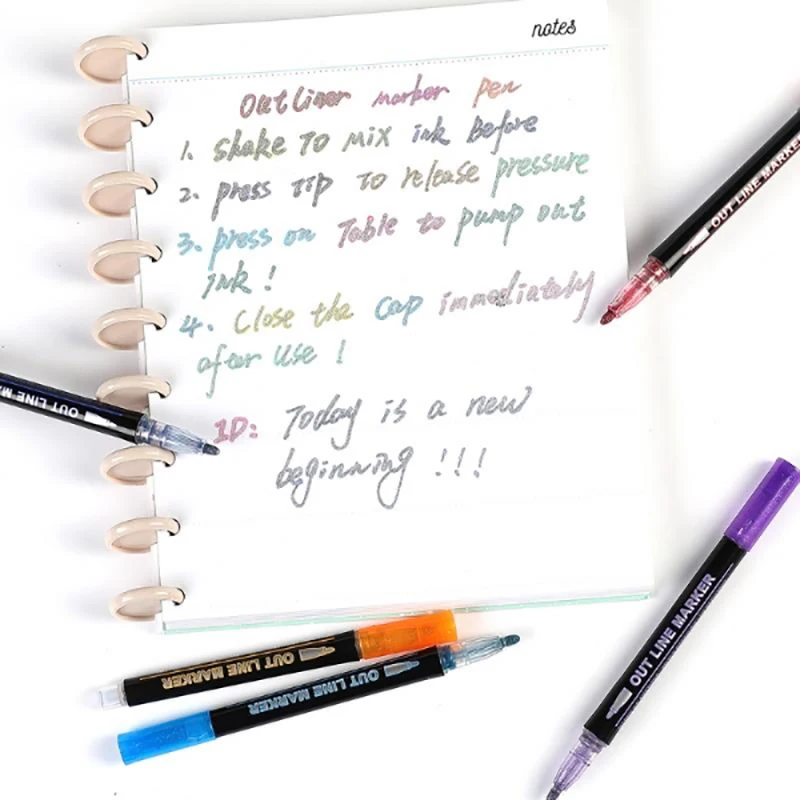 notes
Outliner marker pen
1. Shake To Mix ink Before
2. press Tip To release pressure
3. press on Table to pump out
ink !
4. Close the Cap immediately
after use !
1D: Today is a new
beginning !!!
OUT LINE MARKER
OUT LINE M
OUT LINE MARKER
OUT LINE MARKER
OUT LINE MARKER